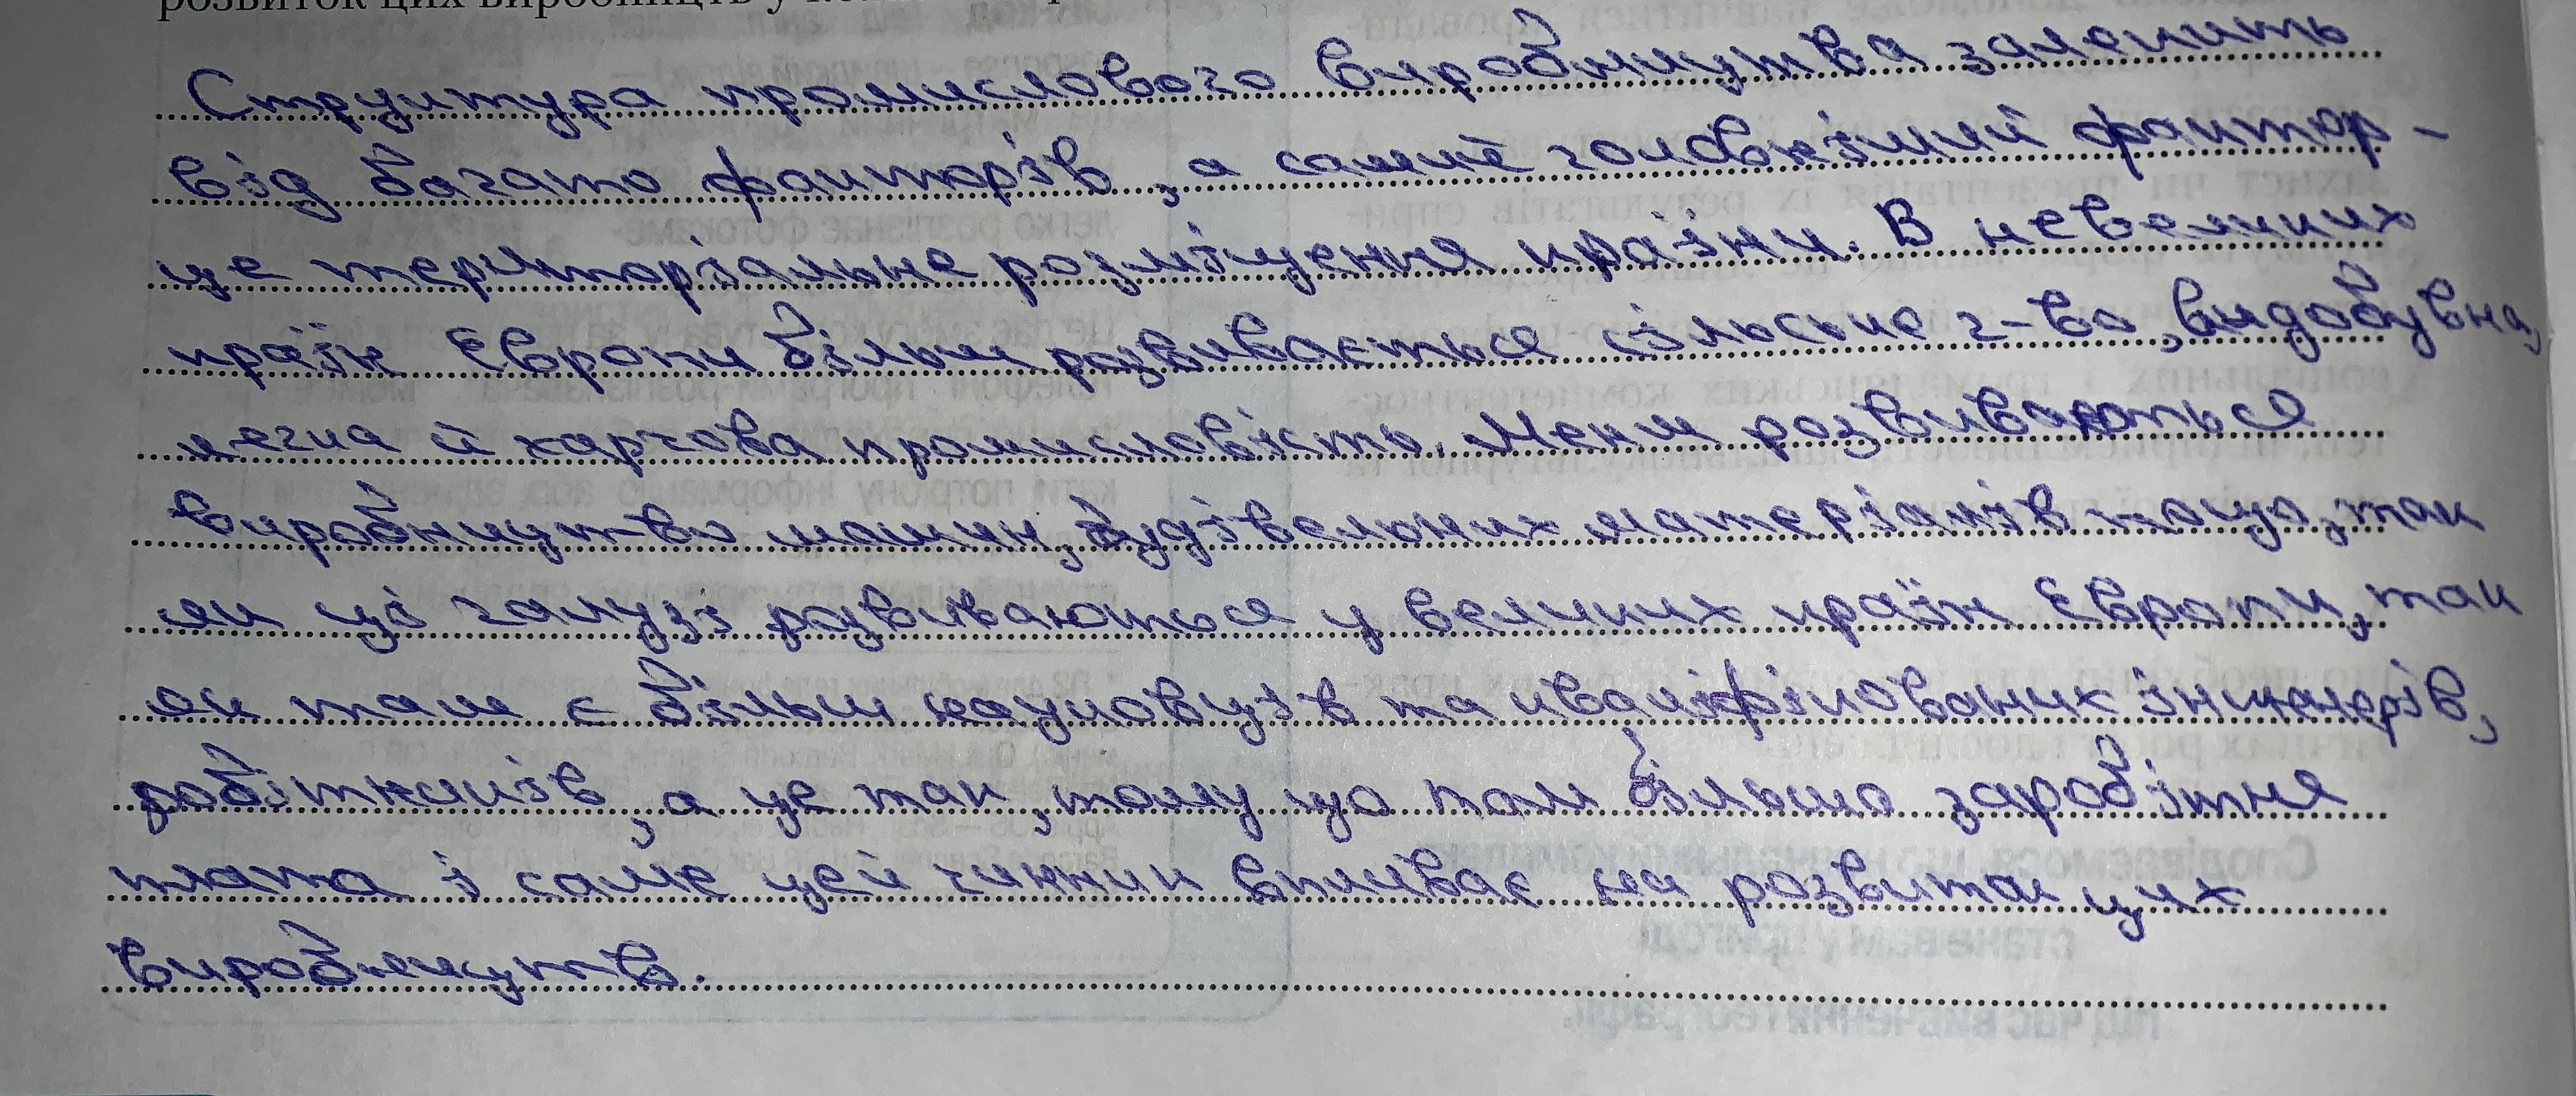 Структура промислового виробництва залежить
від багато факторів, а саме головніший фактор -
це територіальне розміщення країни. В невеликих
країн Європи більш розвивається сільське г-во, видобувна,
легка й харчова промисловість. Менш розвиваються
виробництво машин, будівельних матеріалів тощо, так
як ці галузі розвиваються у великих країн Європи, так
як там є більш науковців та кваліфікованих інженерів,
робітників, а це так, тому що там більша заробітня
плата і саме цей чинник впливає на розвиток цих
виробництв.